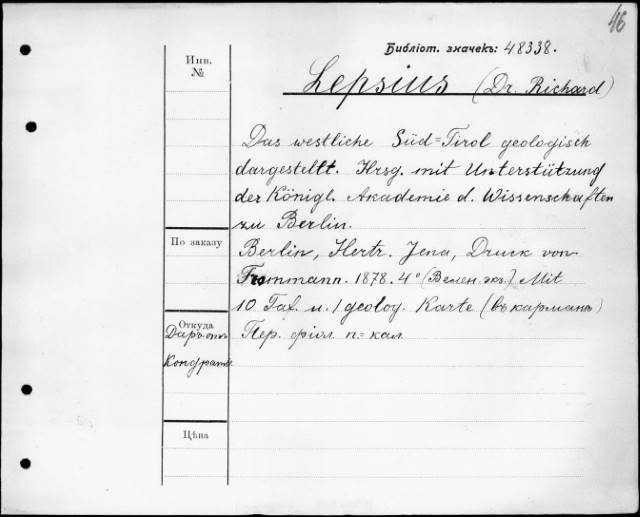 46
Библiот. значекъ: 48338.
Инв.
№
Lepsius (Dr. Richard)
Das westliche Süd=Tirol geologisch
dargestellt. Hrsg. mit Unterstützung
der Königl. Akademie d. Wissenschaften
zu Berlin.
По заказу
Berlin, Hertz. Jena, Druck von
Frommann. 1878. 4° (Велен. экз.) Mit
10 Taf. u. 1 geolog. Karte (въ карманѣ)
Откуда
Даръ отъ
Пер. фiол. п=кал
Цѣна